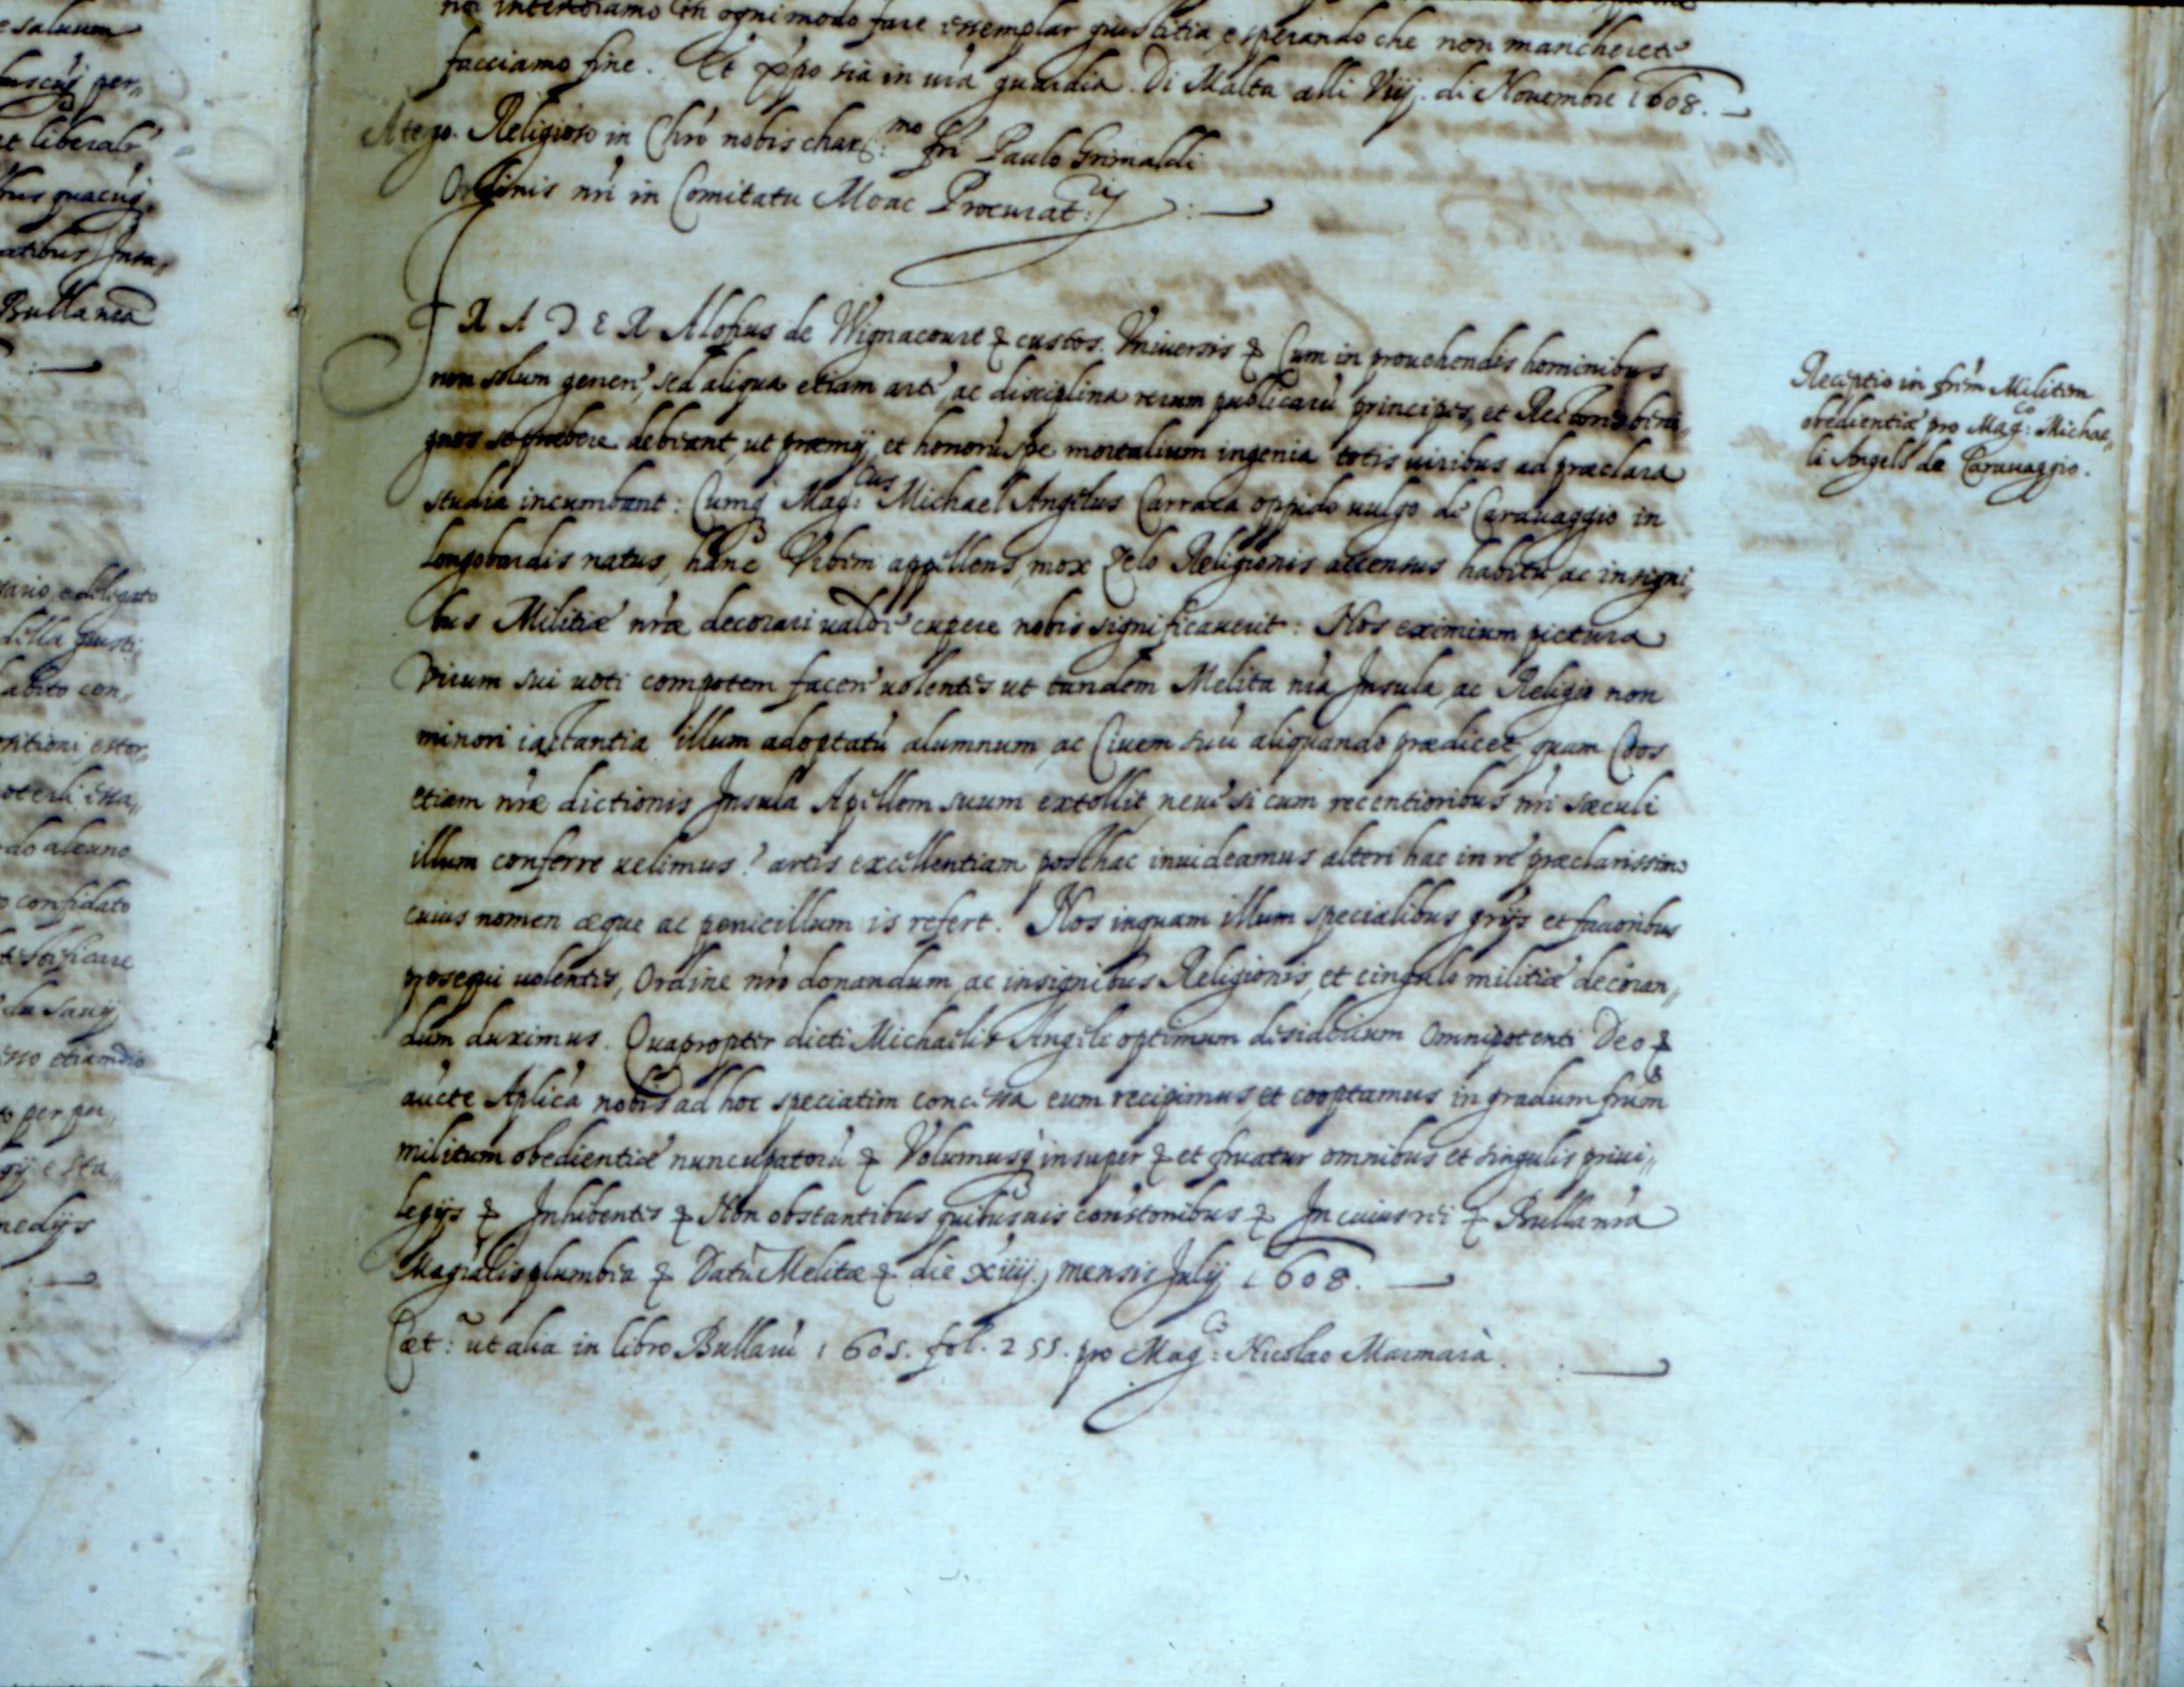 e saluum
et liberalr
Bulla nra
sario, e delegato
della giusti„
abito con„
do alcuno
confidato
etiamdio
per per„
e sta„
medijs
noi intendiamo in ogni modo fare essemplar giustitia, e sperando che non mancherete
facciamo fine. Et xpo sia in vra guardia. Di Malta alli Viij. di Novembre 1608.
A tergo. Religioso in Chro nobis char:mo fri Paulo Grimaldi
Ordinis nri in Comitatu Moac Procurat:ri
FRADER Alofius de Wignacourt & custos. Vniuersis & Cum in prouehendis hominibus
non solum genere, sed aliqua etiam arte, ac disciplina rerum publicaru principes, et Rectores beni„
gnos se praebere debeant, ut praemij, et honoru spe mortalium ingenia totis uiribus ad praeclara
studia incumbant: Cumq Mag:cus Michael Angelus Carraca oppido uulgo de Carauaggio in
Longobardis natus, hanc Vrbem appellens, mox zelo Religionis accensus habitu, ac insigni„
bus Militiae nrae decorari ualde cupere nobis significauerit: Nos eximium pictura
Virum sui uoti compotem facere uolentes ut tandem Melita nra Insula, ac Religio non
minori iactantia illum adoptatu alumnum, ac Ciuem suu aliquando praedicet, quam Coos
etiam nrae dictionis Insula Apellem suum extollit, neue si cum recentioribus nri saeculi
illum conferre uelimus? artis excellentiam posthac inuideamus alteri hac in re praeclarissimo
cuius nomen aeque ac penicillum is refert. Nos inquam illum specialibus grijs et fauoribus
prosequi uolentes, Ordine nro donandum, ac insignibus Religionis, et cingulo militiae decoran„
dum duximus. Quapropter dicti Michaelis Angeli optimum desiderium Omnipotenti Deo &
aucte Aplica nobis ad hoc speciatim concessa eum recipimus, et cooptamus in gradum frum
militum obedientiae nuncupatoru & Volumusq insuper & et fruatur omnibus et singulis priui„
legijs & Inhibentes & Non obstantibus quibusuis constonibus & In cuius rei & Bulla nra
Magralis plumbea & Datu Melitae & die xiiij. mensis Julij 1608.
Caet: ut alia in libro Bullaru 1605. fol. 255. pro Mag:co Nicolao Marmarà.
Receptio in frem Militem
obedientiae pro Mag:co Michae„
li Angelo de Carauaggio.